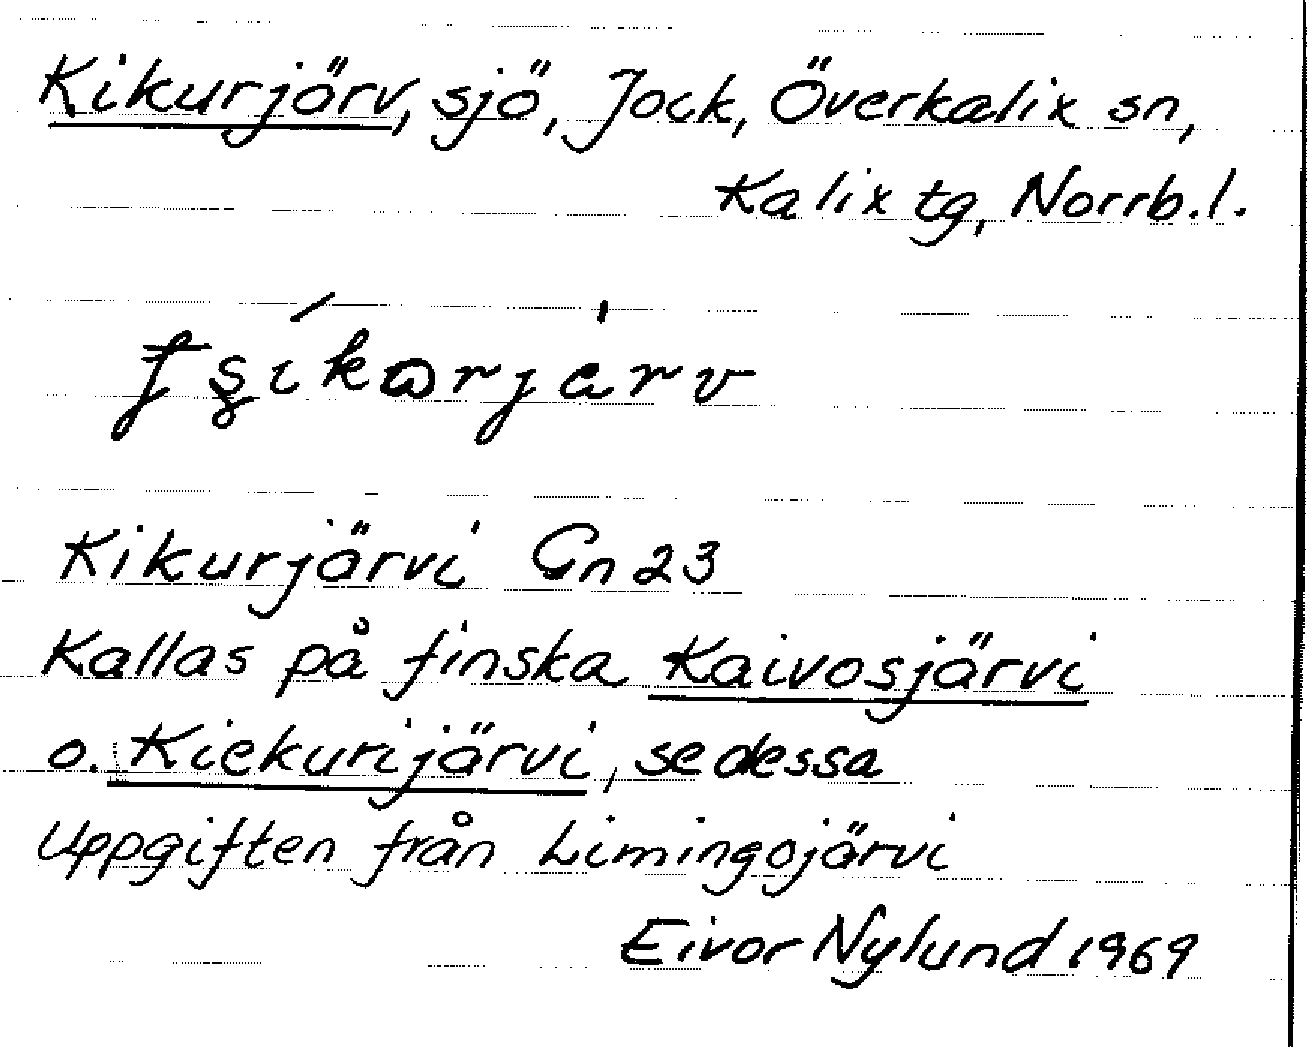 Kikurjärv, sjö, Jock, Överkalix sn,
Kalix tg, Norrb.l.
Kikurjärvi Gn 23
Kallas på finska Kaivosjärvi
o. Kiekurijärvi, se dessa
Uppgiften från Limingojärvi
Eivor Nylund 1969